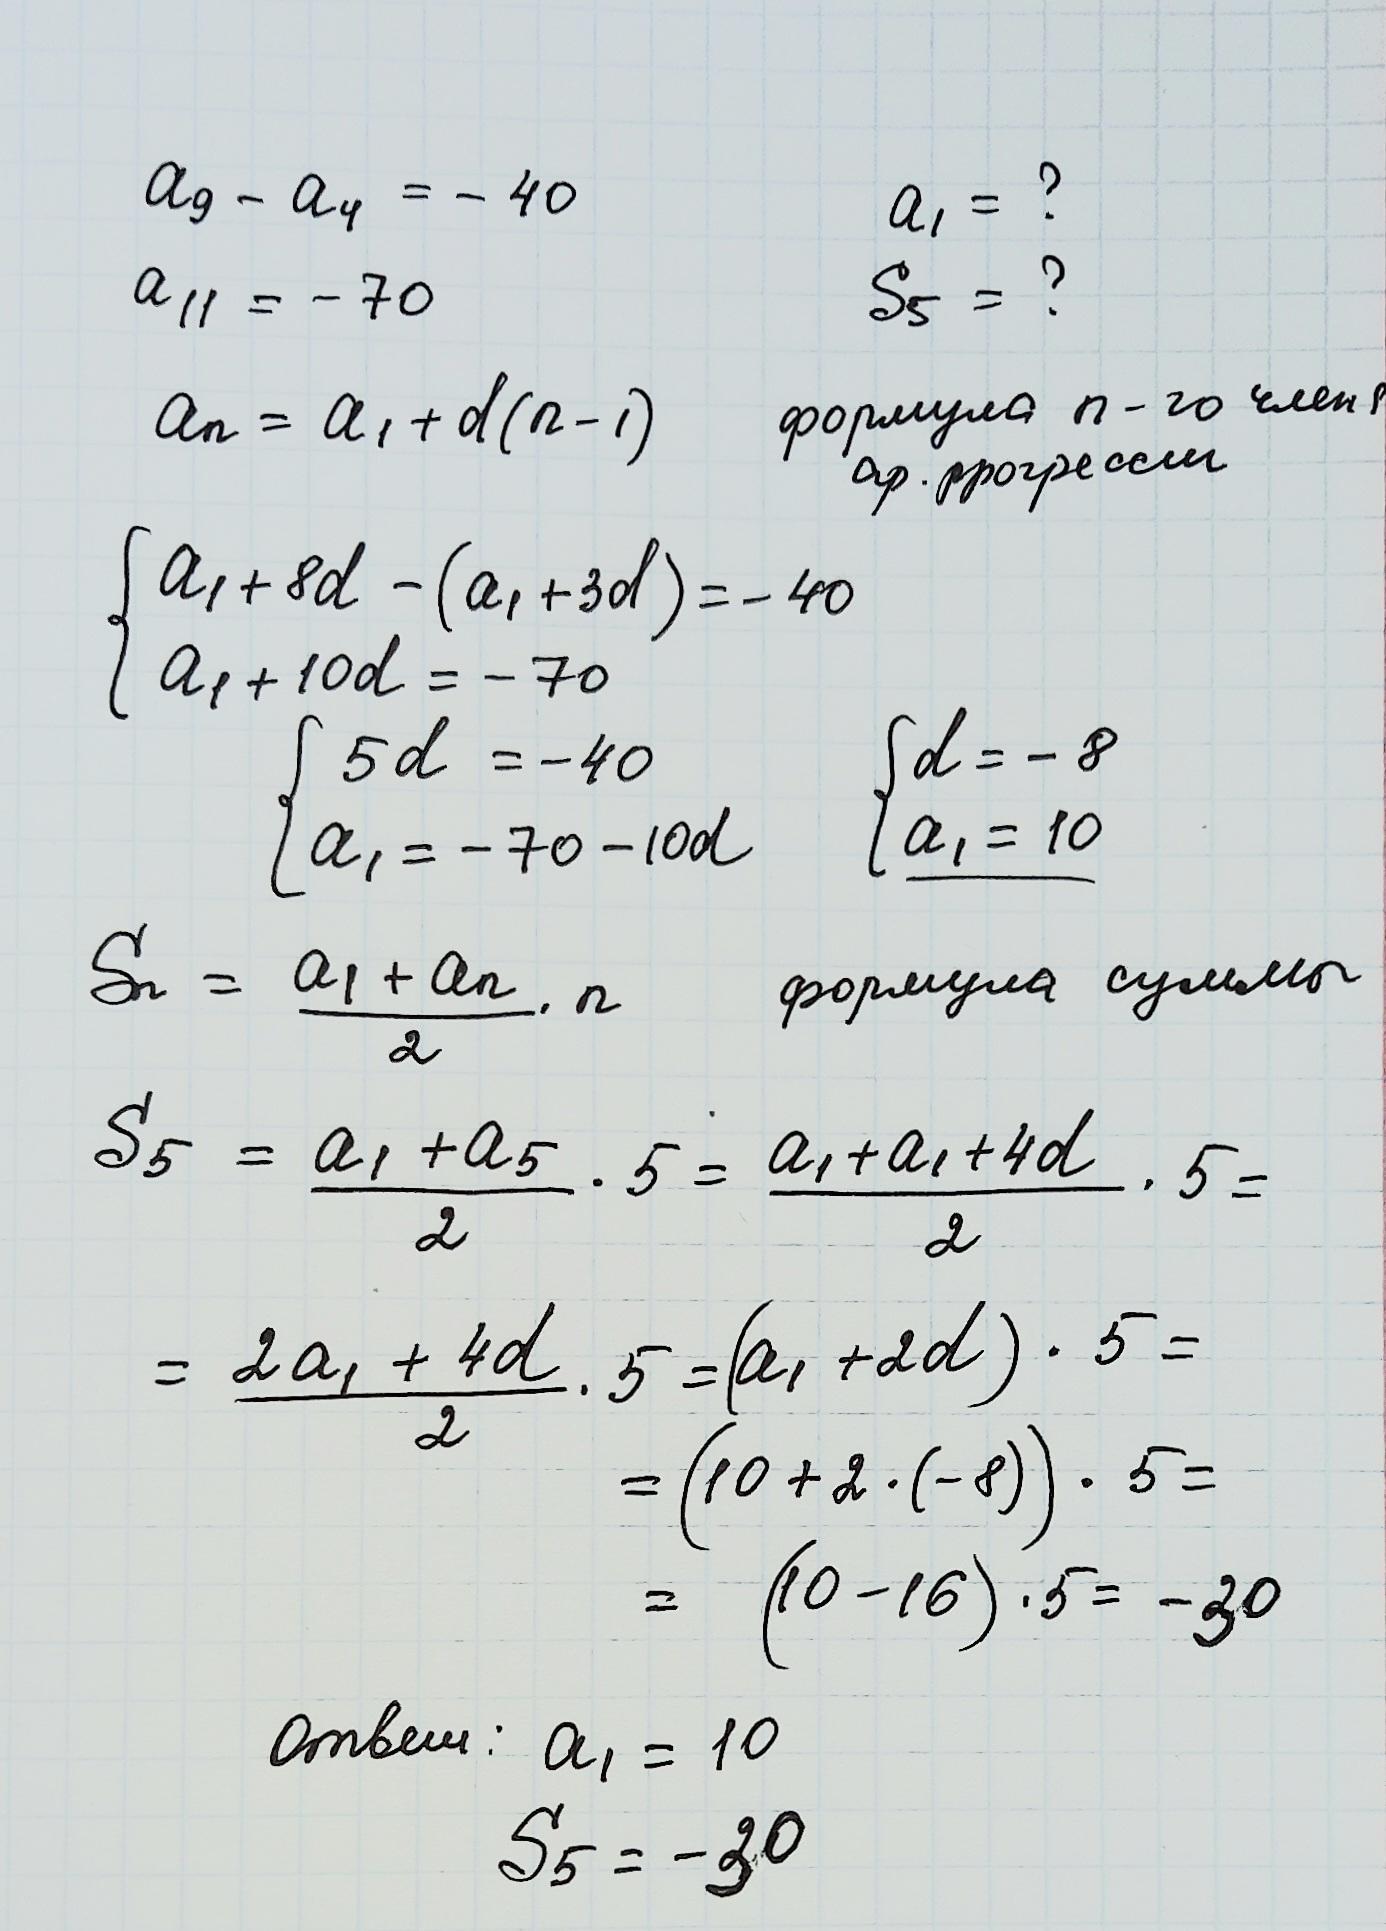 a₉ - a₄ = - 40 a₁ = ?
a₁₁ = - 70 S₅ = ?
aₙ = a₁ + d(n - 1) формула n - го члена
ар. прогрессии
{ a₁ + 8d - (a₁ + 3d) = - 40
a₁ + 10d = - 70
{ 5d = - 40 { d = - 8
a₁ = - 70 - 10d a₁ = 10
Sₙ = (a₁ + aₙ)/2 · n формула суммы
S₅ = (a₁ + a₅)/2 · 5 = (a₁ + a₁ + 4d)/2 · 5 =
= (2a₁ + 4d)/2 · 5 = (a₁ + 2d) · 5 =
= (10 + 2 · (-8)) · 5 =
= (10 - 16) · 5 = - 30
Ответ: a₁ = 10
S₅ = - 30